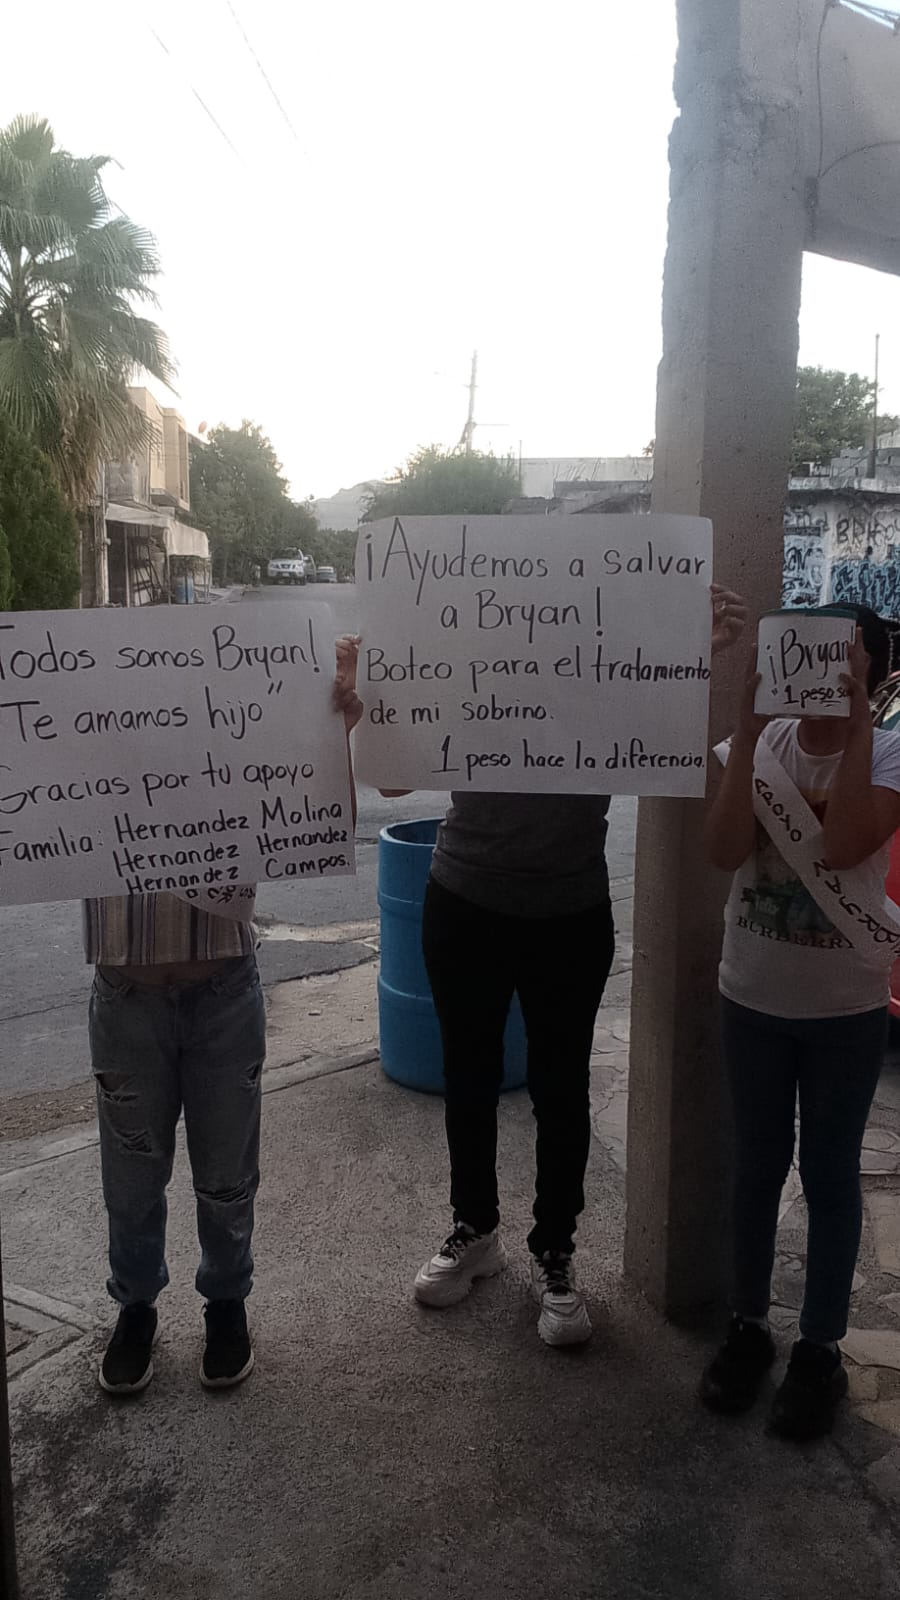 Todos somos Bryan!
"Te amamos hijo"
Gracias por tu apoyo
Familia: Hernandez Molina
Hernandez Hernandez
Hernandez Campos.
¡Ayudemos a salvar
a Bryan!
Boteo para el tratamiento
de mi sobrino.
1 peso hace la diferencia.
¡Bryan
"1 peso
APOYO
BURBERRY